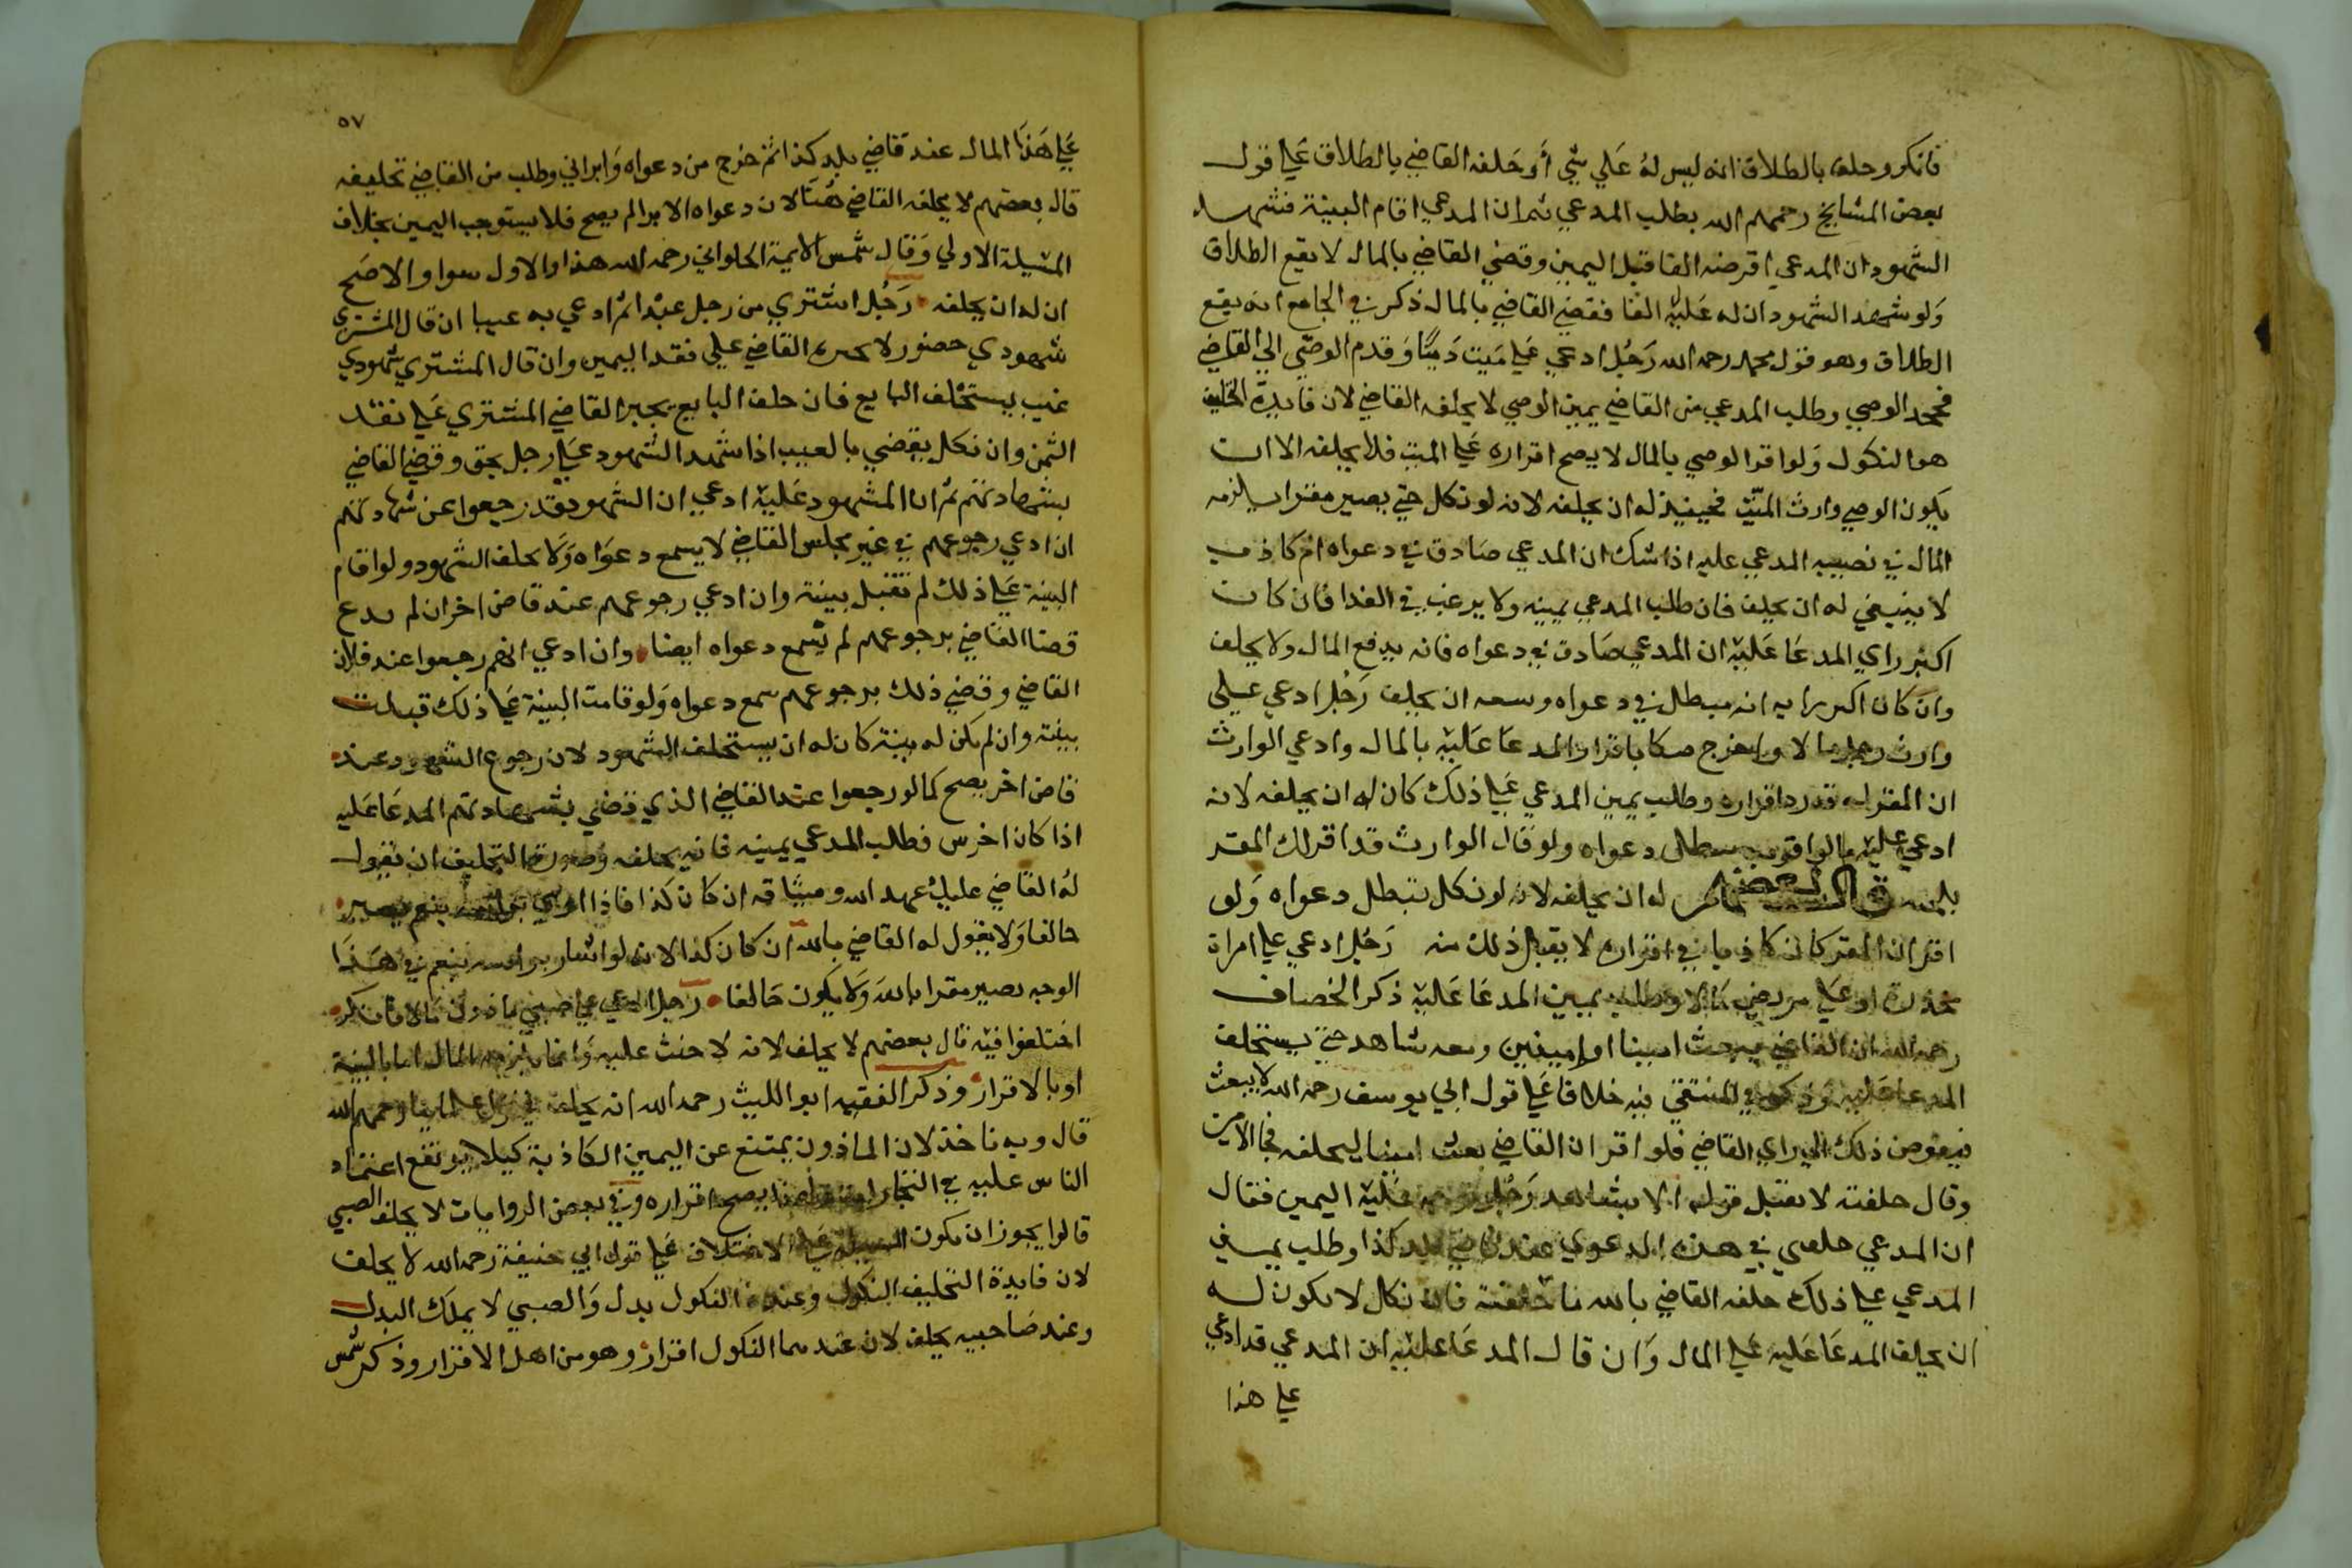 فانكر وحلف بالطلاق انه ليس له علي شي أو حلفه القاضي بالطلاق علي قول
بعض المشايخ رحمهم الله بطلب المدعي ثم ان المدعي اقام البينة فشهد
الشهود ان المدعي اقرضه الفا قبل اليمين وقضي القاضي بالمال لا يقع الطلاق
ولو شهد الشهود ان له عليه الفا فقضي القاضي بالمال ذكر في الجامع انه يقع
الطلاق وهو قول محمد رحمه الله رجل ادعي علي ميت دينا وقدم الوصي الي القاضي
فجحد الوصي وطلب المدعي من القاضي يمين الوصي لا يحلفه القاضي لان فايدة التحليف
هو النكول ولو اقر الوصي بالمال لا يصح اقراره علي الميت فلا يحلفه الا ان
يكون الوصي وارث الميت فحينيذ له ان يحلفه لانه لو نكل حتي يصير مقرا يلزمه
المال في نصيبه المدعي عليه اذا شك ان المدعي صادق في دعواه ام كاذب
لا ينبغي له ان يحلف فان طلب المدعي يمينه ولا يرغب في الفدا فان كان
اكبر راي المدعا عليه ان المدعي صادق في دعواه فانه يدفع المال ولا يحلف
وان كان اكبر رايه انه مبطل في دعواه وسعه ان يحلف رجل ادعي علي
وارث رجل مالا واخرج صكا باقرار المدعا عليه بالمال وادعي الوارث
ان المقر له قد رد اقراره وطلب يمين المدعي علي ذلك كان له ان يحلفه لانه
ادعي عليه ما لو اقر به يبطل دعواه ولو قال الوارث قد اقر لك المقر
له ان يحلفه لانه لو نكل تبطل دعواه ولو
اقر ان المقر كان كاذبا في اقراره لا يقبل ذلك منه رجل ادعي علي امراة
مخدرة او علي مريض مالا وطلب يمين المدعا عليه ذكر الخصاف
رحمه الله ان القاضي يبعث امينا او امينين ومعه شاهد حتي يستحلف
المدعا عليه وذكر في المنتقي فيه خلافا علي قول ابي يوسف رحمه الله لا يبعث
فيفوض ذلك الي راي القاضي فلو اقر ان القاضي بعث امينا ليحلفه فجا الامين
وقال حلفته لا يقبل قوله الا بشاهد رجل عليه اليمين فقال
ان المدعي حلفني في هذه الدعوي عند قاضي بلد كذا وطلب يمين
المدعي علي ذلك حلفه القاضي بالله ما حلفته فان نكل لا يكون له
ان يحلف المدعا عليه علي المال وان قال المدعا عليه ان المدعي قد ادعي
علي هذا
٥٧
علي هذا المال عند قاضي بلد كذا ثم خرج من دعواه وابراني وطلب من القاضي تحليفه
قال بعضهم لا يحلفه القاضي هنا لان دعواه الابرا لم يصح فلا يستوجب اليمين بخلاف
المسيلة الاولي وقال شمس الايمة الحلواني رحمه الله هذا والاول سوا والاصح
ان له ان يحلفه رجل اشتري من رجل عبدا ثم ادعي به عيبا ان قال المشتري
شهودي حضور لا يجبره القاضي علي نقد اليمين وان قال المشتري شهودي
غيب يستحلف البايع فان حلف البايع يجبر القاضي المشتري علي نقد
الثمن وان نكل يقضي بالعيب اذا شهد الشهود علي رجل بحق وقضي القاضي
بشهادتهم ثم ان المشهود عليه ادعي ان الشهود قد رجعوا عن شهادتهم
ان ادعي رجوعهم في غير مجلس القاضي لا يسمع دعواه ولا يحلف الشهود ولو اقام
البينة علي ذلك لم تقبل بينة وان ادعي رجوعهم عند قاض اخر ان لم يدع
قضا القاضي برجوعهم لم تسمع دعواه ايضا وان ادعي انهم رجعوا عند فلان
القاضي وقضي ذلك برجوعهم سمع دعواه ولو قامت البينة علي ذلك قبلت
بينته وان لم يكن له بينة كان له ان يستحلف الشهود لان رجوع الشهود عند
قاض اخر يصح كما لو رجعوا عند القاضي الذي قضي بشهادتهم المدعا عليه
اذا كان اخرس فطلب المدعي يمينه فانه يحلفه وصورة التحليف ان يقول
له القاضي عليك عهد الله وميثاقه ان كان كذا فاذا بنعم يصير
حالفا ولا يقول له القاضي بالله ان كان كذا لانه لو اشار براسه بنعم في هذا
الوجه يصير مقرا بالله ولا يكون حالفا رجل ادعي علي صبي ماذون مالا فانكر
اختلفوا فيه قال بعضهم لا يحلف لانه لا حنث عليه وانما يلزمه المال اما بالبينة
او بالاقرار وذكر الفقيه ابو الليث رحمه الله انه يحلف في قول علماينا رحمهم الله
قال وبه ناخذ لان الماذون يمتنع عن اليمين الكاذبة كيلا يرتفع اعتماد
الناس عليه في يصح اقراره وفي بعض الروايات لا يحلف الصبي
قالوا يجوز ان يكون المسيلة علي الاختلاف علي قول ابي حنيفة رحمه الله لا يحلف
لان فايدة التحليف النكول وعنده النكول بدل والصبي لا يملك البدل
وعند صاحبيه يحلف لان عندهما النكول اقرار وهو من اهل الاقرار وذكر شمس